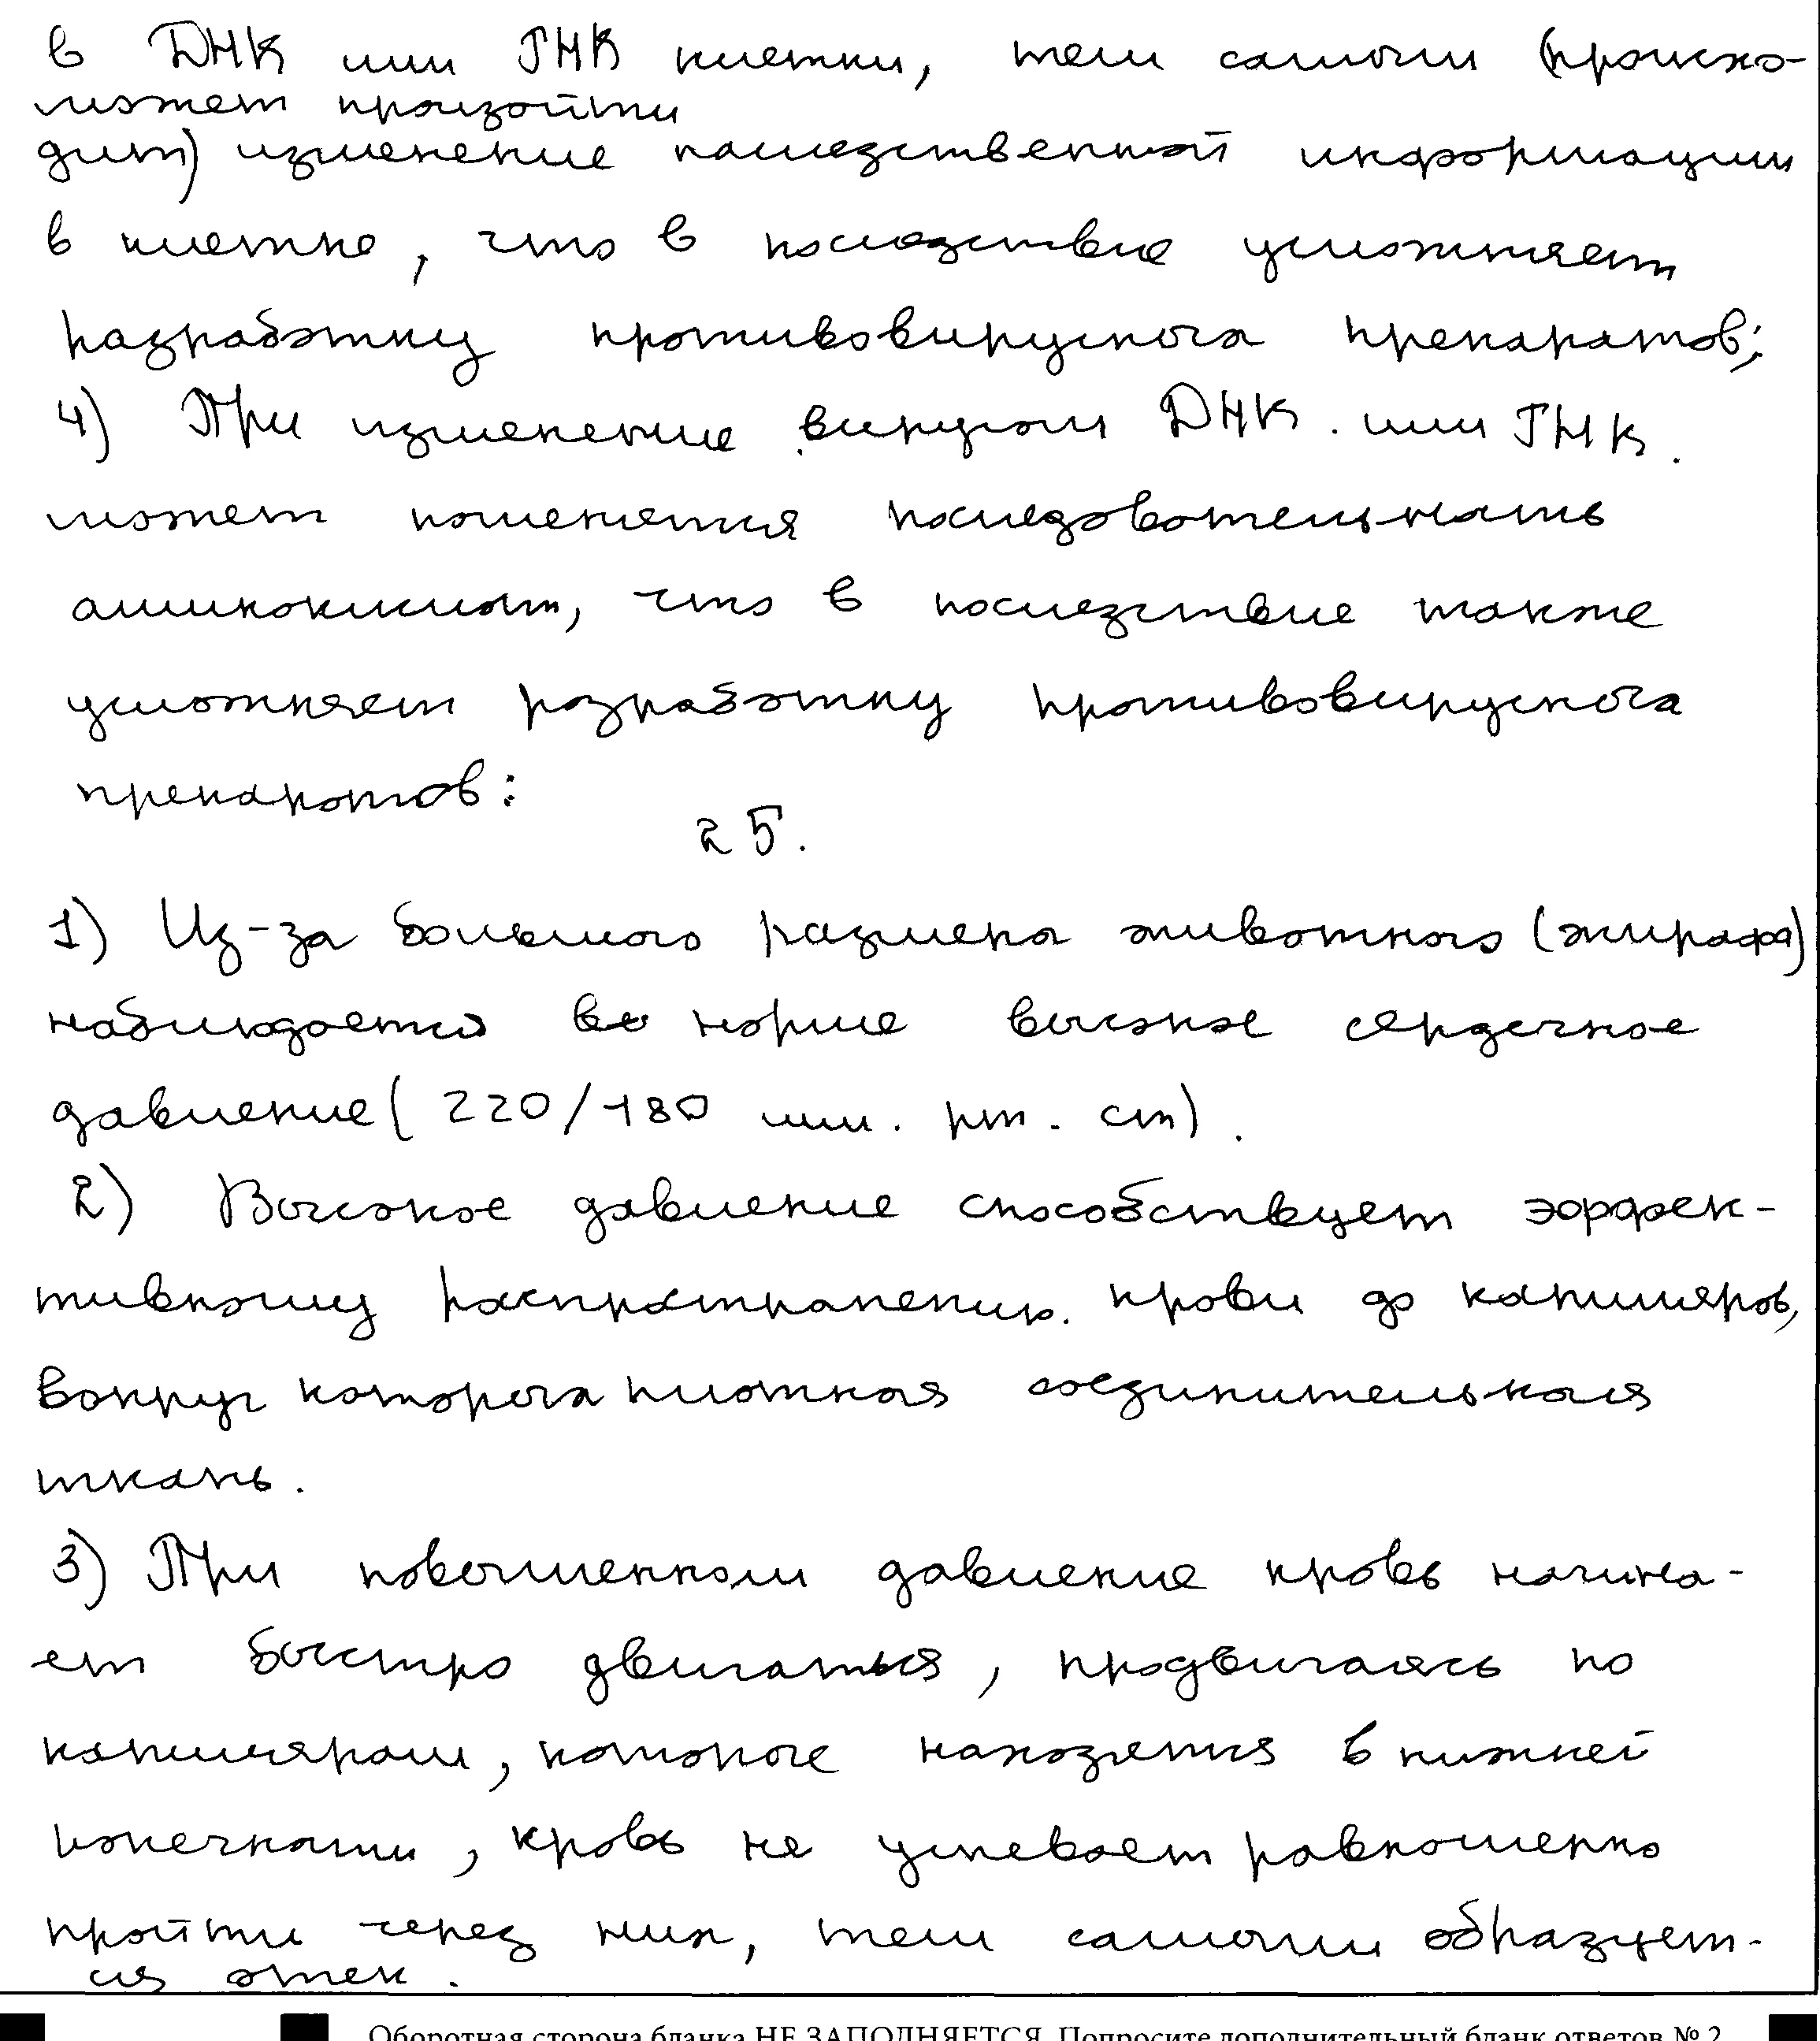 в ДНК или РНК клетки, тем самым (происхо-
может произойти
дит) изменение наследственной информации
в клетке, что в последствие усложняет
разработку противовирусных препаратов;
4) При изменение вирусом ДНК или РНК
может поменятся последовательность
аминокислот, что в последствие также
усложняет разработку противовирусных
препаратов:
25.
1) Из-за большого размера животного (жирафа)
наблюдается в норме высокое сердечное
давление (220/180 мм. рт. ст).
2) Высокое давление способствует эффек-
тивному распространению крови до капиляров,
вокруг которых плотная соединительная
ткань.
3) При повышенном давление кровь начина-
ет быстро двигаться, продвигаясь по
капилярам, которые находятся в нижней
конечности, кровь не успевает равномерно
пройти через них, тем самым образует-
ся отек.
Оборотная сторона бланка НЕ ЗАПОЛНЯЕТСЯ. Попросите дополнительный бланк ответов № 2